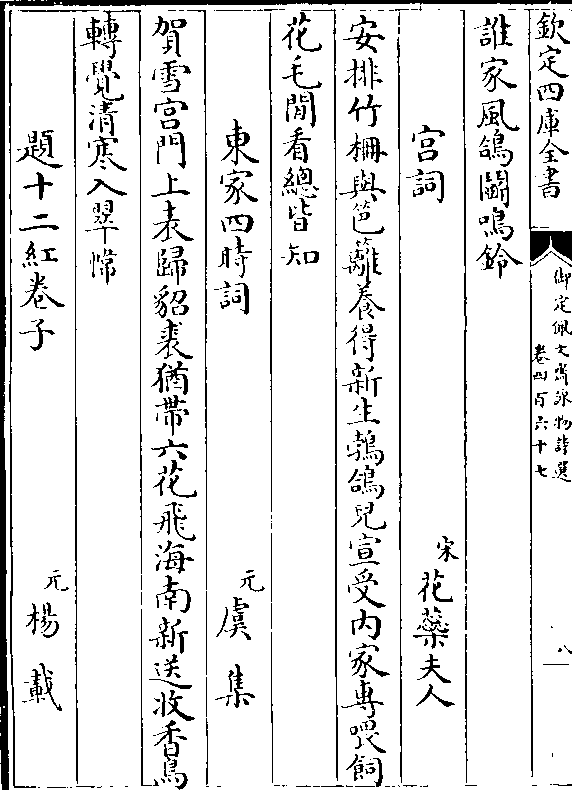 欽定四庫全書
御定佩文齋詠物詩選
卷四百六十七
八
誰家風鴿鬬鳴鈴
宫詞
宋花蘂夫人
安排竹栅與笆籬養得新生鵓鴿兒宣受内家專喂飼
花毛閒看總皆知
東家四時詞
元虞集
賀雪宫門上表歸貂裘猶帶六花飛海南新送收香鳥
轉覺清寒入翠幃
題十二紅卷子
元楊載